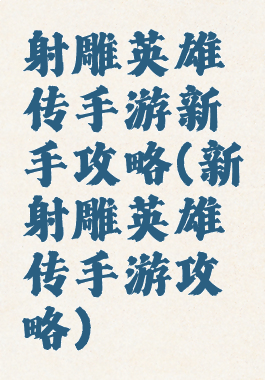 射雕英雄
传手游新
手攻略(新
射雕英雄
传手游攻
略)